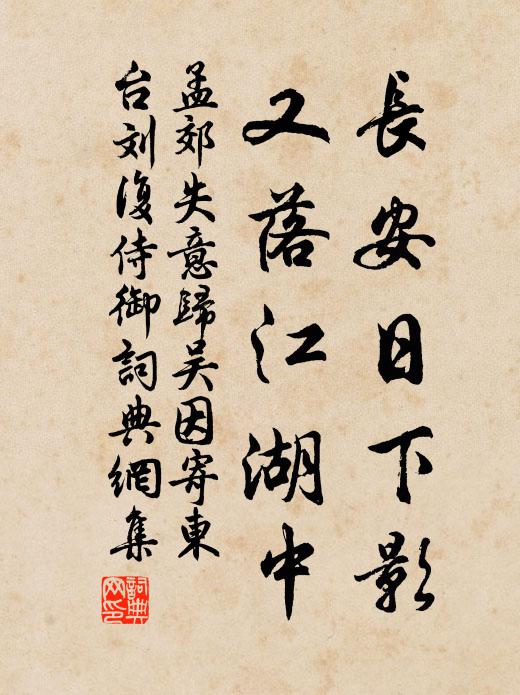 長安日下影
又落江湖中
孟郊失意歸吴因寄東
台刘復侍御詞典網集
詞典网印